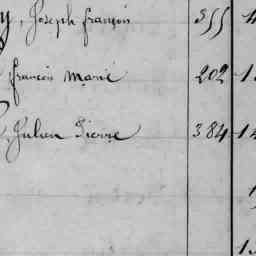 y, Joseph françois 355
françois Marie 202 1
Julien Pierre 384 14
1
1